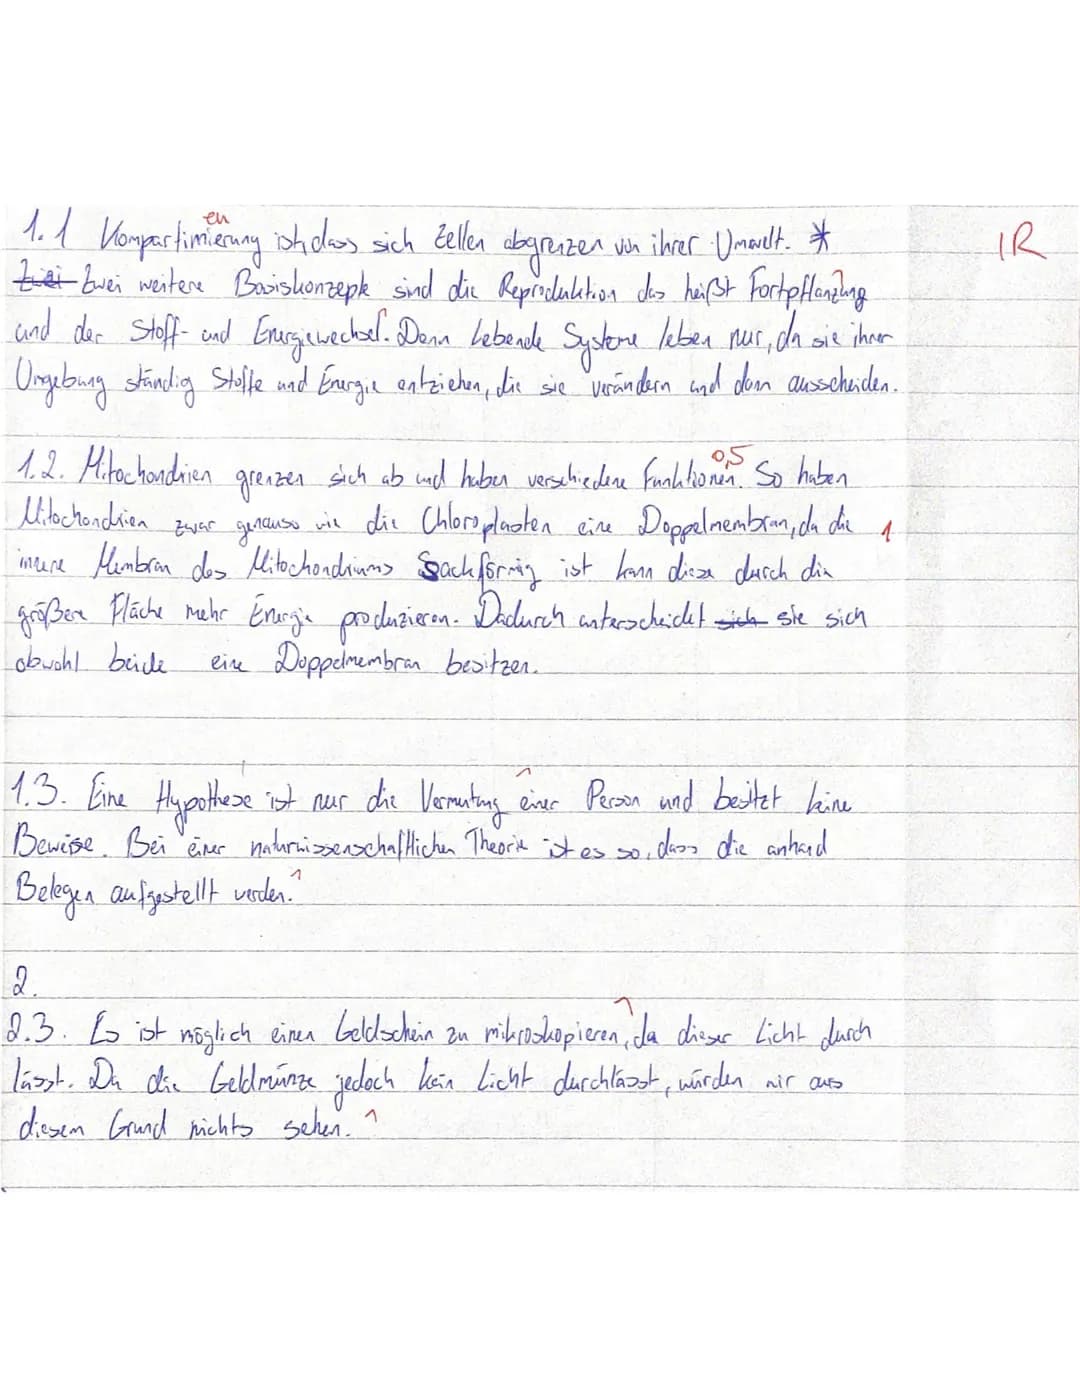 en
1.1 Kompartimierung ist, dass sich Zellen abgrenzen von ihrer Umwelt. * 1R
Zwei Zwei weitere Basiskonzepte sind die Reproduktion das heißt Fortpflanzung
und der Stoff- und Energiewechsel. Denn Lebende Systeme leben nur, da sie ihrer
Umgebung ständig Stoffe und Energie entziehen, die sie verändern und dann ausscheiden.
0,5
1.2. Mitochondrien grenzen sich ab und haben verschiedene Funktionen. So haben
Mitochondrien zwar genauso wie die Chloroplasten eine Doppelmembran, da die 1
innere Membran des Mitochondriums Sackförmig ist kann diese durch die
größere Fläche mehr Energie produzieren. Dadurch unterscheidet sich sie sich
obwohl beide eine Doppelmembran besitzen.
1.3. Eine Hypothese ist nur die Vermutung einer Person und besitzt keine
Beweise. Bei einer naturwissenschaftlichen Theorie ist es so, dass die anhand
Belegen aufgestellt werden. 1
2.
2.3. Es ist möglich einen Geldschein zu mikroskopieren, da dieser Licht durch
lässt. Da die Geldmünze jedoch kein Licht durchlässt, würden wir aus
diesem Grund nichts sehen. 1